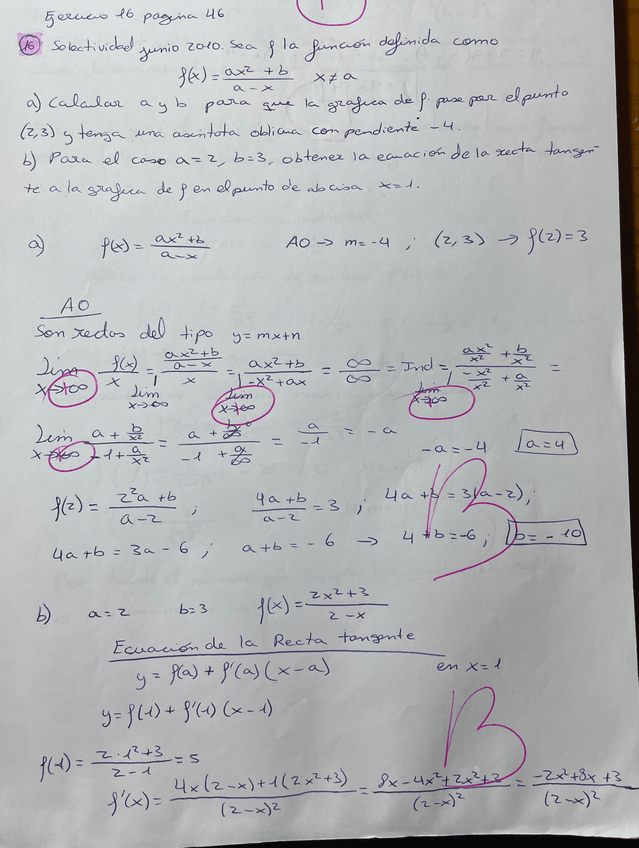 Ejercicio 16 pagina 46
16 Selectividad junio 2010. Sea f la función definida como
f(x) = (ax² + b)/(a - x)   x ≠ a
a) Calcular a y b para que la grafica de f pase por el punto
(2,3) y tenga una asintota oblicua con pendiente -4.
b) Para el caso a = 2, b = 3, obtener la ecuación de la recta tangen-
te a la grafica de f en el punto de abcisa x = 1.
a)   f(x) = (ax² + b)/(a - x)   AO → m = -4 ; (2,3) → f(2) = 3
AO
Son rectas del tipo y = mx + n
Lim x→+∞ f(x)/x = Lim x→∞ ((ax² + b)/(a - x))/x = Lim x→+∞ (ax² + b)/(-x² + ax) = ∞/∞ = Ind = Lim x→∞ (ax²/x² + b/x²)/(-x²/x² + a/x²) =
Lim x→+∞ (a + b/x²)/(-1 + a/x²) = (a + b/∞)/(-1 + a/∞) = a/-1 = -a   -a = -4   a = 4
f(2) = (2²a + b)/(a - 2) ;   (4a + b)/(a - 2) = 3 ;   4a + b = 3(a - 2) ;
4a + b = 3a - 6 ;   a + b = -6 → 4 + b = -6 ;   b = -10
B
b)   a = 2   b = 3   f(x) = (2x² + 3)/(2 - x)
Ecuación de la Recta tangente
y = f(a) + f'(a) (x - a)   en x = 1
y = f(1) + f'(1) (x - 1)
B
f(1) = (2·1² + 3)/(2 - 1) = 5
f'(x) = (4x(2 - x) + 1(2x² + 3))/(2 - x)² = (8x - 4x² + 2x² + 3)/(2 - x)² = (-2x² + 8x + 3)/(2 - x)²